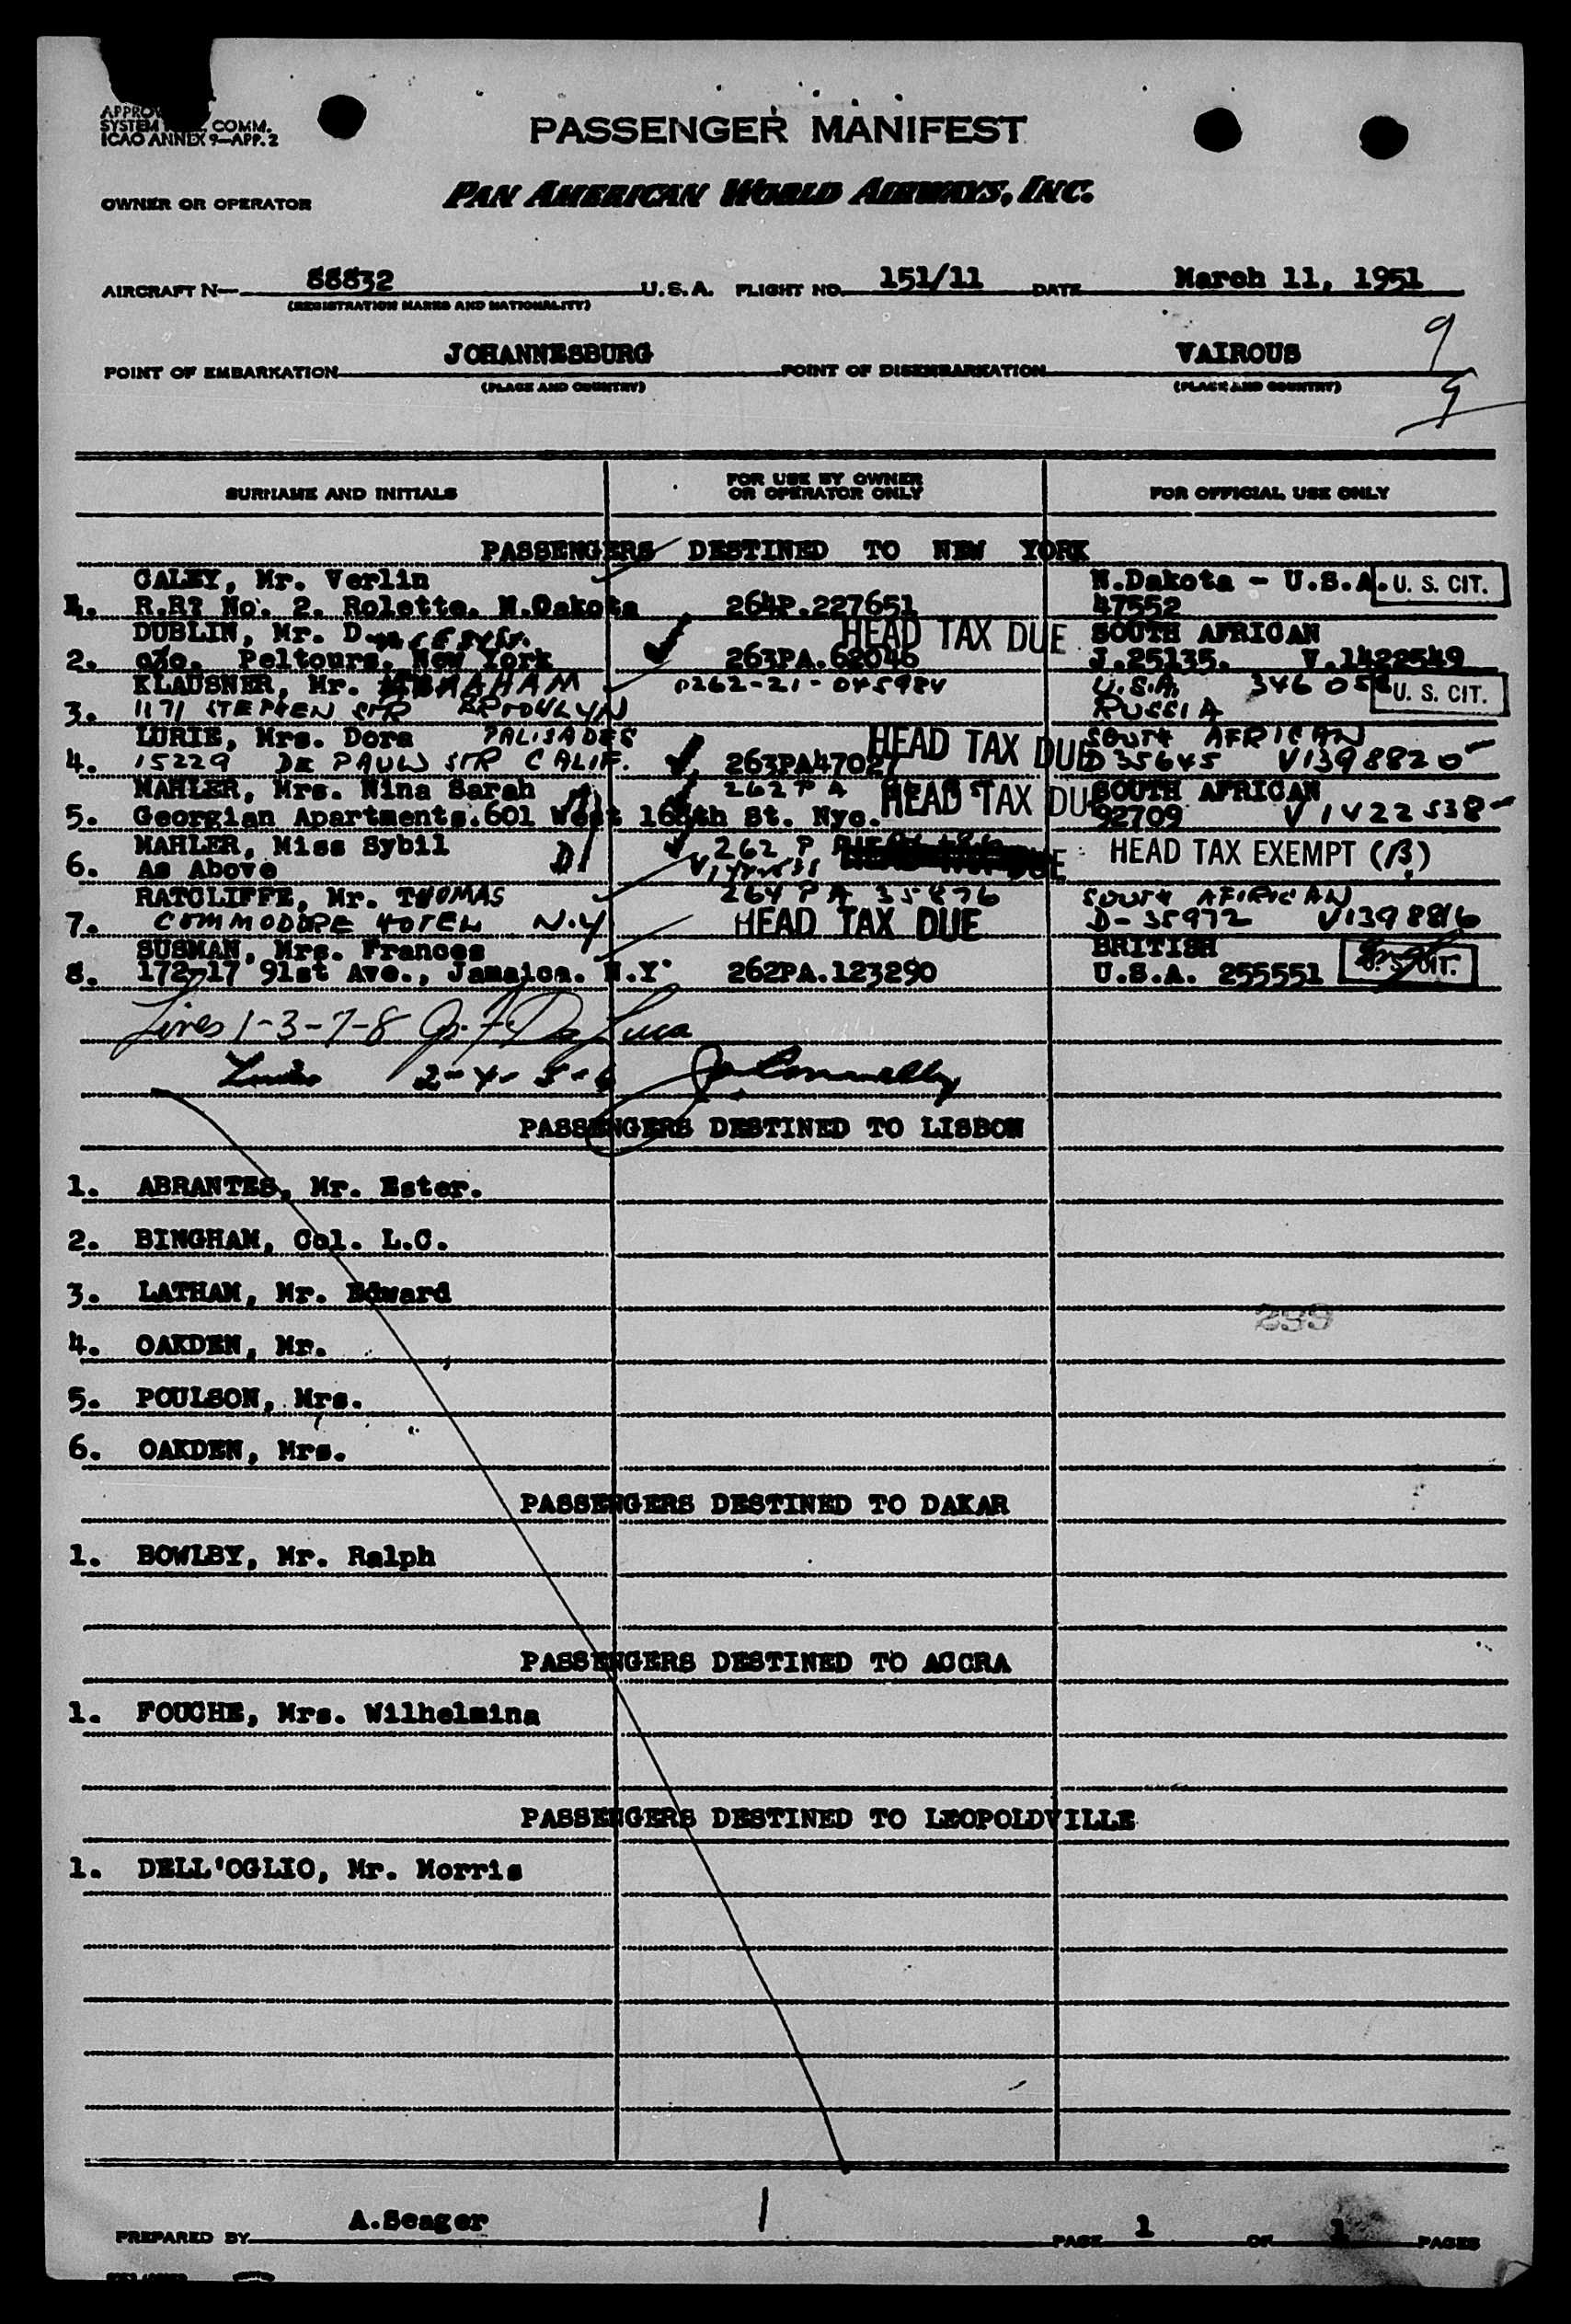 APPRO
SYSTEM COMM.
ICAO ANNEX 9—APP. 2
PASSENGER MANIFEST
OWNER OR OPERATOR PAN AMERICAN WORLD AIRWAYS, INC.
AIRCRAFT N— 88832 U.S.A. FLIGHT NO. 151/11 DATE March 11, 1951
(REGISTRATION MARKS AND NATIONALITY)
9
POINT OF EMBARKATION JOHANNESBURG POINT OF DISEMBARKATION VAIROUS
(PLACE AND COUNTRY) (PLACE AND COUNTRY)
9
SURNAME AND INITIALS FOR USE BY OWNER OR OPERATOR ONLY FOR OFFICIAL USE ONLY
PASSENGERS DESTINED TO NEW YORK
CALEY, Mr. Verlin N.Dakota - U.S.A. U. S. CIT.
1. R.R? No. 2. Rolette. N.Dakota 264P.227651 47552
DUBLIN, Mr. D HEAD TAX DUE SOUTH AFRICAN
2. c/o. Peltours. New York 263PA.62046 J.25135. V.1422549
KLAUSNER, Mr. ABRAHAM 0262-21-045984 U.S.A. U. S. CIT.
3. 1171 STEPHEN STR BROOKLYN RUSSIA
LURIE, Mrs. Dora PALISADES HEAD TAX DUE SOUTH AFRICAN
4. 15229 DE PAUW STR CALIF. 263PA47027 D35645 V1398820
MAHLER, Mrs. Nina Sarah 262 PA HEAD TAX DUE SOUTH AFRICAN
5. Georgian Apartments.601 West 168th St. Nyc. 92709 V1422538
MAHLER, Miss Sybil D1 262 P HEAD TAX EXEMPT (B)
6. As Above
RATCLIFFE, Mr. THOMAS 264 PA 35876 SOUTH AFRICAN
7. COMMODORE HOTEL N.Y HEAD TAX DUE D-35972 V1398816
SUSMAN, Mrs. Frances BRITISH
8. 172-17 91st Ave., Jamaica. N.Y. 262PA.123290 U.S.A. 255551 U. S. CIT.
Lines 1-3-7-8 De Luca
Lines 2-4-5-6 Connelly
PASSENGERS DESTINED TO LISBON
1. ABRANTES, Mr. Ester.
2. BINGHAM, Col. L.C.
3. LATHAM, Mr. Edward
299
4. OAKDEN, Mr.
5. POULSON, Mrs.
6. OAKDEN, Mrs.
PASSENGERS DESTINED TO DAKAR
1. BOWLBY, Mr. Ralph
PASSENGERS DESTINED TO ACCRA
1. FOUCHE, Mrs. Wilhelmina
PASSENGERS DESTINED TO LEOPOLDVILLE
1. DELL'OGLIO, Mr. Morris
PREPARED BY A.Seager 1 PAGE 1 OF 1 PAGES